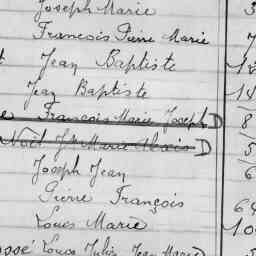 Joseph Marie 3
François Pierre Marie 7
Jean Baptiste 12
Jean Baptiste 14
François Marie Joseph D 8
Noël Jh Marie Alexis D 5
Joseph Jean 6
Pierre François 64
Louis Marie 10
Louis Julien Jean Marie